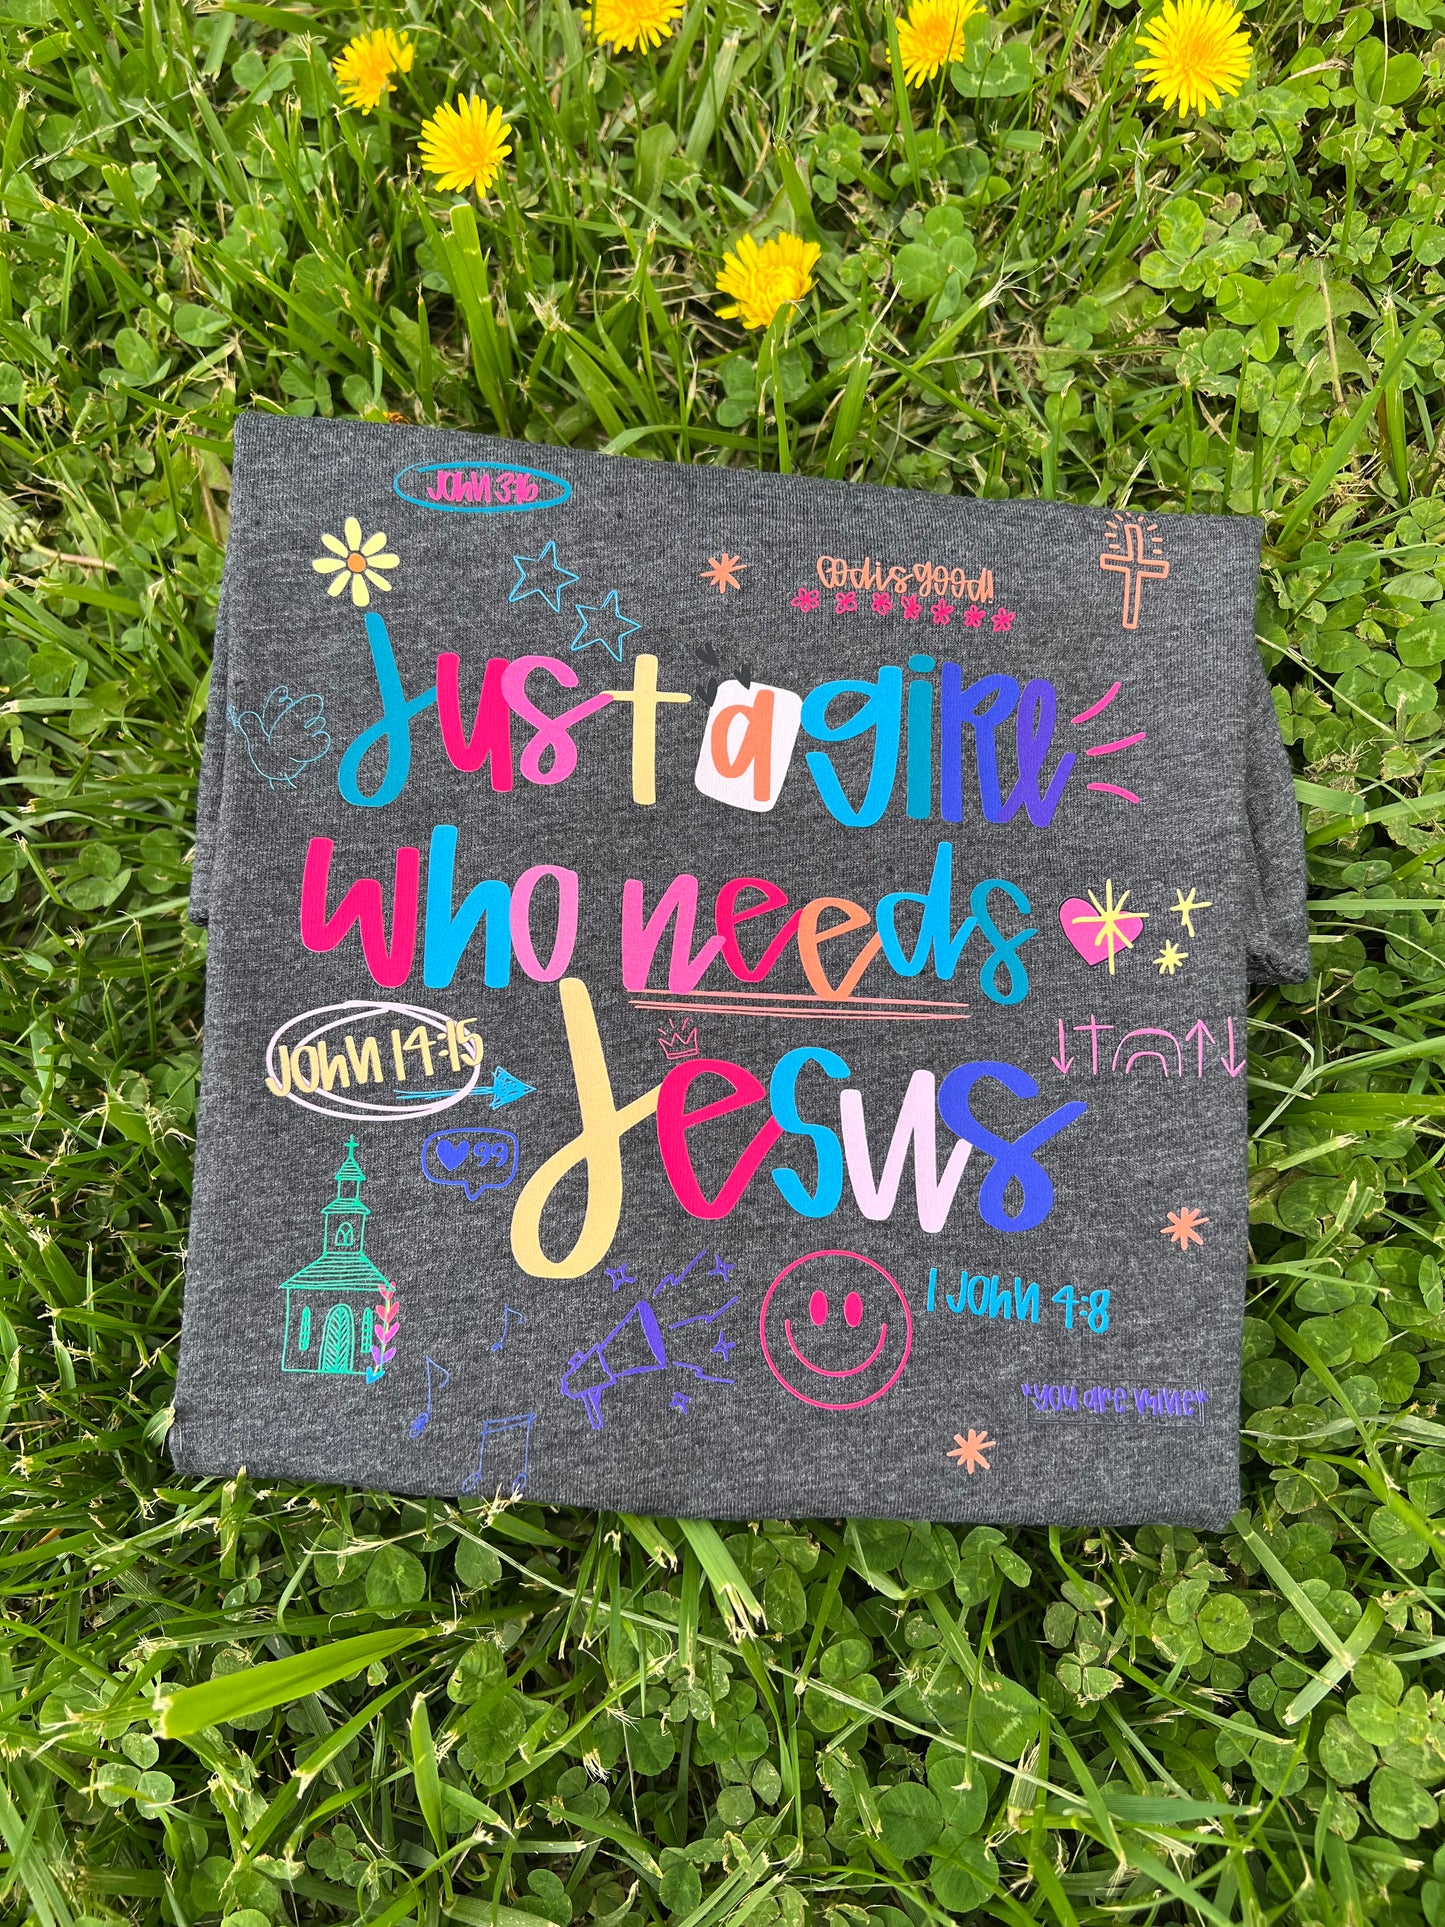 John 3:16
God is good!
Just a girl
who needs
John 14:15
Jesus
99
1 John 4:8
"you are mine"